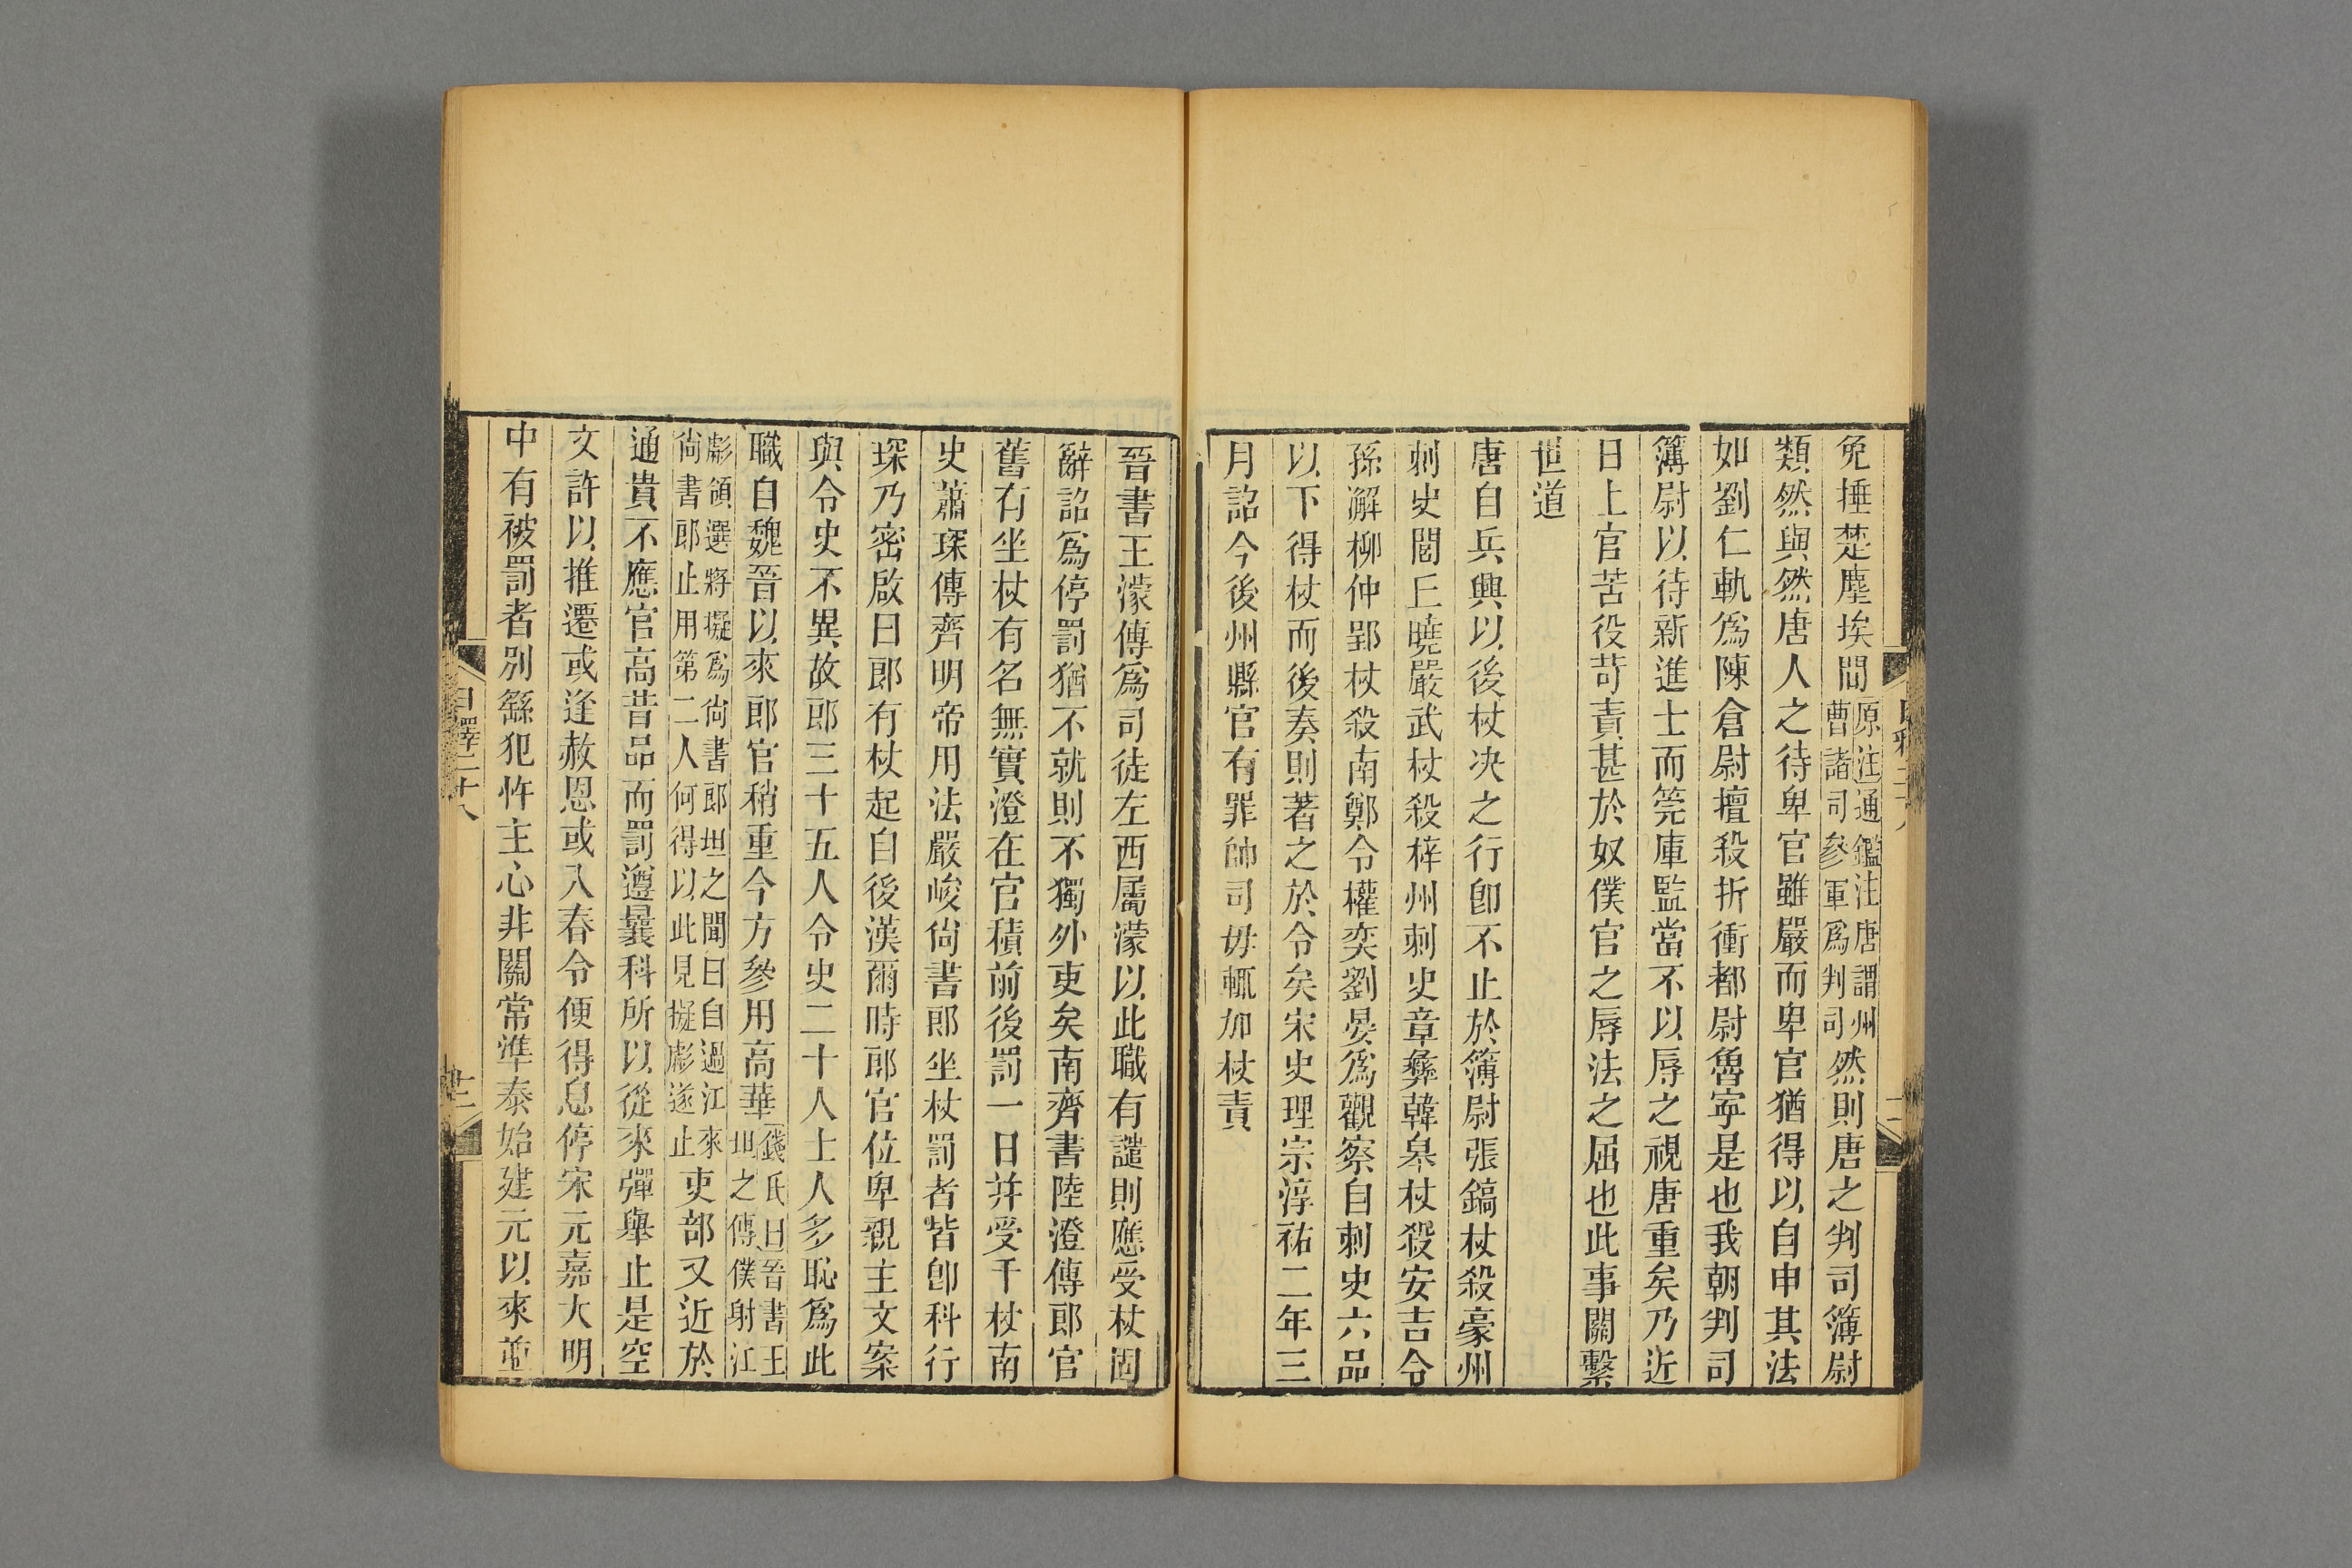 免捶楚塵埃間原注通鑑注唐謂州曹諸司參軍爲判司然則唐之判司簿尉
類然與然唐人之待卑官雖嚴而卑官猶得以自申其法
如劉仁軌爲陳倉尉擅殺折衝都尉魯寜是也我朝判司
簿尉以待新進士而筦庫監當不以辱之視唐重矣乃近
日上官苦役苛責甚於奴僕官之辱法之屈也此事關繫
世道
唐自兵興以後杖决之行卽不止於簿尉張鎬杖殺豪州
刺史閭丘曉嚴武杖殺梓州刺史章彝韓臯杖殺安吉令
孫澥柳仲郢杖殺南鄭令權奕劉晏爲觀察自刺史六品
以下得杖而後奏則著之於令矣宋史理宗淳祐二年三
月詔今後州縣官有罪帥司毋輒加杖責
晉書王濛傳爲司徒左西屬濛以此職有譴則應受杖固
辭詔爲停罰猶不就則不獨外吏矣南齊書陸澄傳郎官
舊有坐杖有名無實澄在官積前後罰一日幷受千杖南
史蕭琛傳齊明帝用法嚴峻尙書郎坐杖罰者皆卽科行
琛乃密啟曰郎有杖起自後漢爾時郎官位卑親主文案
與令史不異故郎三十五人令史二十人士人多恥爲此
職自魏晉以來郎官稍重今方參用高華錢氏曰晉書王坦之傳僕射江
彪領選將擬爲尙書郎坦之聞曰自過江來尙書郎止用第二人何得以此見擬彪遂止吏部又近於
通貴不應官高昔品而罰遵曩科所以從來彈舉止是空
文許以推遷或逢赦恩或入春令便得息停宋元嘉大明
中有被罰者別繇犯忤主心非關常準泰始建元以來並
日釋二十八